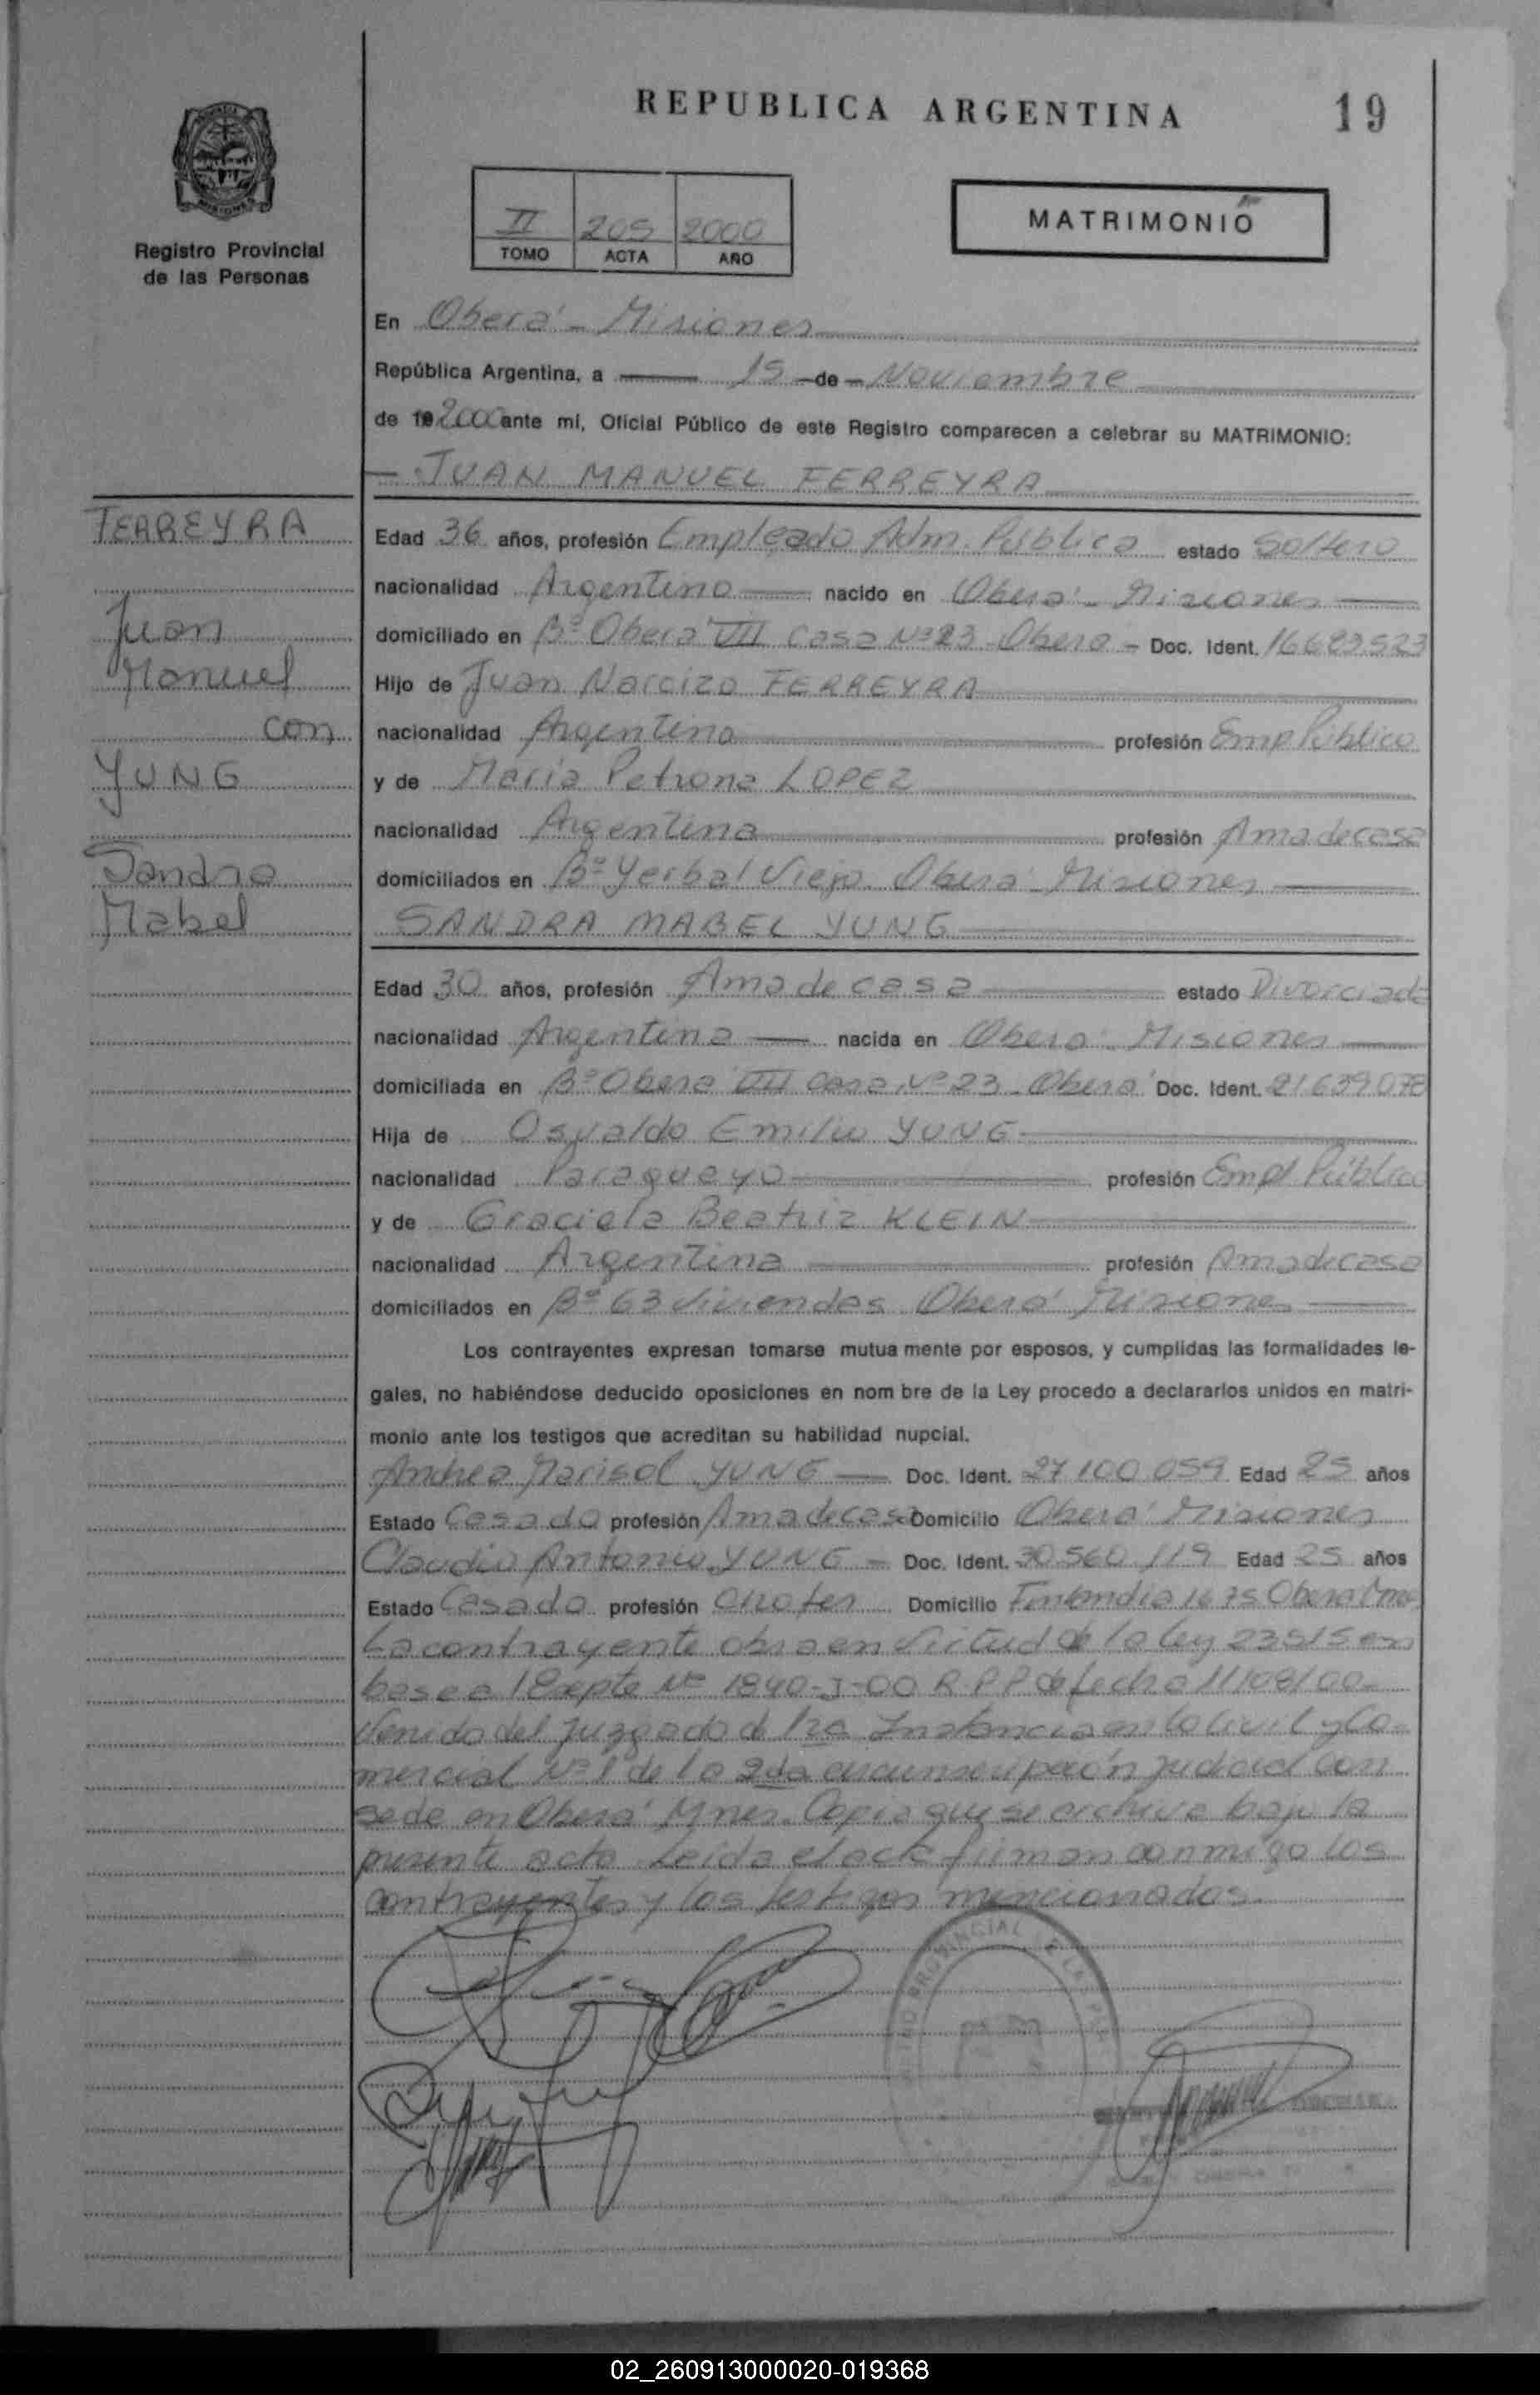 REPUBLICA ARGENTINA
19
MATRIMONIO
II 205 2000
TOMO ACTA AÑO
Registro Provincial
de las Personas
En Oberá - Misiones
República Argentina, a 15 de Noviembre
de 19 2000 ante mi, Oficial Público de este Registro comparecen a celebrar su MATRIMONIO:
JUAN MANUEL FERREYRA
FERREYRA
Juan
Manuel
con
YUNG
Sandra
Mabel
Edad 36 años, profesión Empleado Adm. Publica estado Soltero
nacionalidad Argentino nacido en Oberá - Misiones
domiciliado en Bº Oberá VII Casa Nº 23 - Oberá - Doc. Ident. 16683523
Hijo de Juan Narcizo FERREYRA
nacionalidad Argentina profesión Emp Público
y de María Petrona LOPEZ
nacionalidad Argentina profesión Ama de casa
domiciliados en Bº Yerbal Viejo Oberá Misiones
SANDRA MABEL YUNG
Edad 30 años, profesión Ama de casa estado Divorciada
nacionalidad Argentina nacida en Oberá - Misiones
domiciliada en Bº Oberá VII Casa Nº 23 - Oberá Doc. Ident. 21.639.078
Hija de Osvaldo Emilio YUNG
nacionalidad Paraguayo profesión Empl Público
y de Graciela Beatriz KLEIN
nacionalidad Argentina profesión Ama de casa
domiciliados en Bº 63 Viviendas Oberá Misiones
Los contrayentes expresan tomarse mutua mente por esposos, y cumplidas las formalidades le-
gales, no habiéndose deducido oposiciones en nom bre de la Ley procedo a declararlos unidos en matri-
monio ante los testigos que acreditan su habilidad nupcial.
Andrea Marisol YUNG Doc. Ident. 27.100.059 Edad 25 años
Estado Casada profesión Ama de casa Domicilio Oberá Misiones
Claudio Antonio YUNG Doc. Ident. 30.560.119 Edad 25 años
Estado Casado profesión Chofer Domicilio Finlandia 1675 Oberá Mnes
La contrayente obra en virtud de la ley 23515 en
base al Expte Nº 1840-J-00 R.P.P de fecha 11/08/00
Venido del Juzgado de 1ra Instancia en lo Civil y Co-
mercial Nº 1 de la 2da circunscripción judicial con
sede en Oberá Mnes. Copia que se archiva bajo la
presente acta Leida el acta firman conmigo los
contrayentes y los testigos mencionados.
02_260913000020-019368